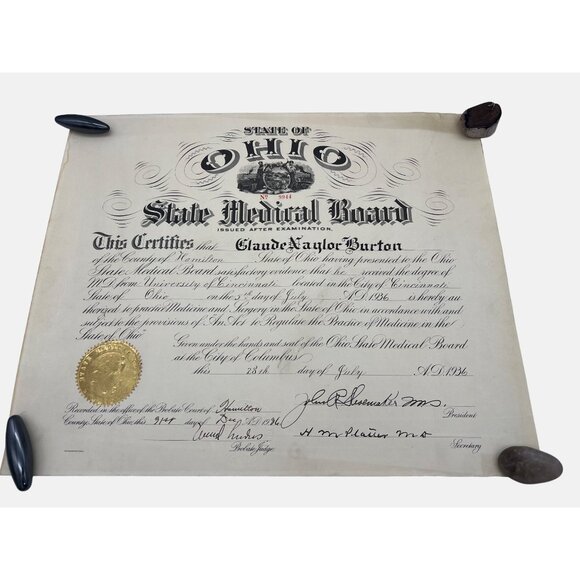 STATE OF
OHIO
No 9944
State Medical Board
ISSUED AFTER EXAMINATION.
This Certifies that Claude Naylor Burton
of the County of Hamilton State of Ohio having presented to the Ohio
State Medical Board satisfactory evidence that he received the degree of
M.D. from University of Cincinnati located in the City of Cincinnati
State of Ohio on the 5th day of July A.D. 1936 is hereby au-
thorized to practice Medicine and Surgery in the State of Ohio in accordance with and
subject to the provisions of "An Act to Regulate the Practice of Medicine in the
State of Ohio"
Given under the hands and seal of the Ohio State Medical Board
at the City of Columbus
this 28th day of July A.D. 1936
John R. Shoemaker M.D.
President
Recorded in the office of the Probate Court of Hamilton
County, State of Ohio, this 31st day of Dec A.D. 1936
Probate Judge
H M Platter M D
Secretary